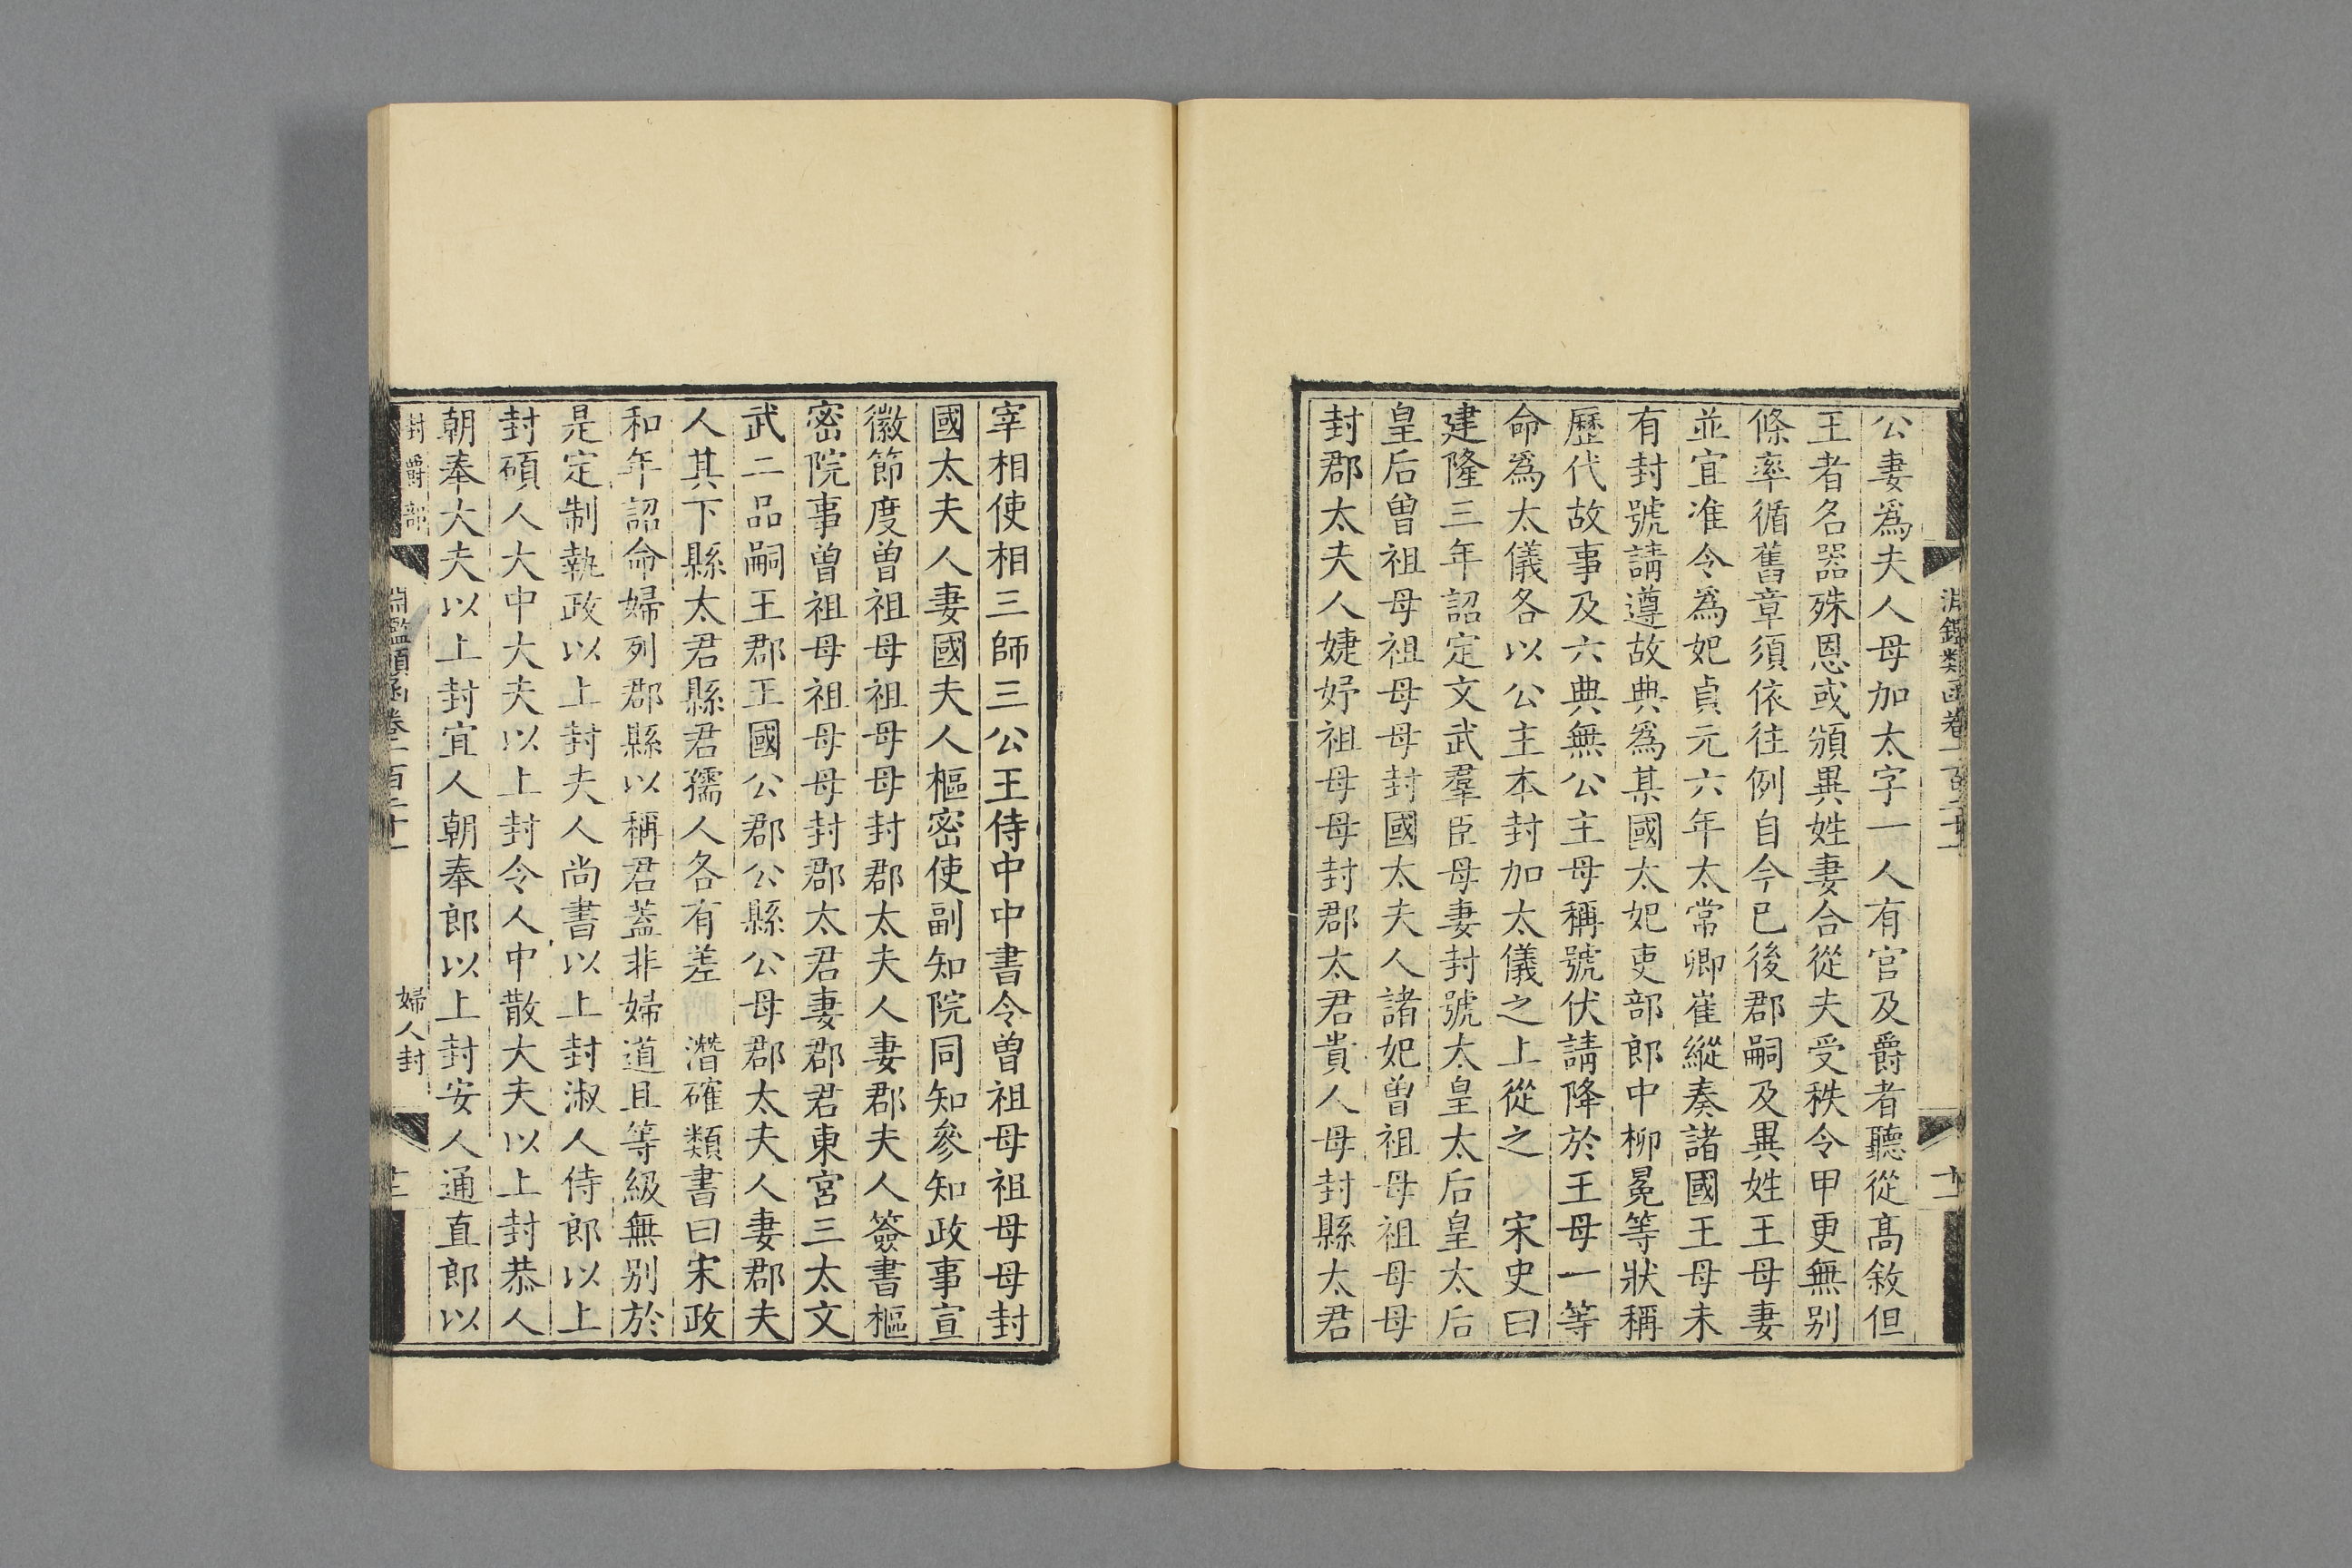 公妻爲夫人母加太字一人有官及爵者聽從髙敘但
王者名器殊恩或頒異姓妻合從夫受秩令甲更無别
條率循舊章須依往例自今已後郡嗣及異姓王母妻
並宜准令爲妃貞元六年太常卿崔縱奏諸國王母未
有封號請遵故典爲某國太妃吏部郎中柳冕等狀稱
歷代故事及六典無公主母稱號伏請降於王母一等
命爲太儀各以公主本封加太儀之上從之　宋史曰
建隆三年詔定文武羣臣母妻封號太皇太后皇太后
皇后曾祖母祖母母封國太夫人諸妃曾祖母祖母母
封郡太夫人婕妤祖母母封郡太君貴人母封縣太君
宰相使相三師三公王侍中中書令曾祖母祖母母封
國太夫人妻國夫人樞密使副知院同知參知政事宣
徽節度曾祖母祖母母封郡太夫人妻郡夫人簽書樞
密院事曾祖母祖母母封郡太君妻郡君東宮三太文
武二品嗣王郡王國公郡公縣公母郡太夫人妻郡夫
人其下縣太君縣君孺人各有差　潛確類書曰宋政
和年詔命婦列郡縣以稱君蓋非婦道且等級無别於
是定制執政以上封夫人尚書以上封淑人侍郎以上
封碩人大中大夫以上封令人中散大夫以上封恭人
朝奉大夫以上封宜人朝奉郎以上封安人通直郎以
封爵部
婦人封